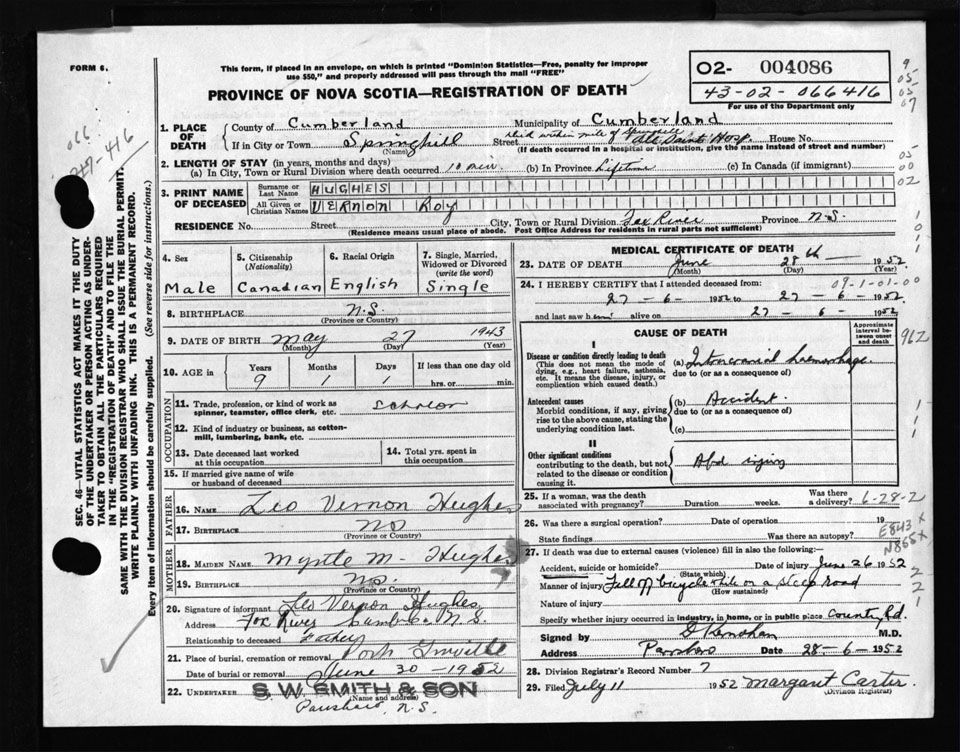 FORM 6.
This form, if placed in an envelope, on which is printed "Dominion Statistics—Free, penalty for improper
use $50," and properly addressed will pass through the mail "FREE"
O2- 004086
43-02-066416
For use of the Department only
PROVINCE OF NOVA SCOTIA—REGISTRATION OF DEATH
1. PLACE OF DEATH
County of Cumberland Municipality of Cumberland
If in City or Town Springhill Street House No.
(Name) (If death occurred in a hospital or institution, give the name instead of street and number)
2. LENGTH OF STAY (in years, months and days)
(a) In City, Town or Rural Division where death occurred 10 min. (b) In Province Lifetime (c) In Canada (if immigrant)
3. PRINT NAME OF DECEASED
Surname or Last Name HUGHES
All Given or Christian Names VERNON ROY
RESIDENCE No. Street City, Town or Rural Division Fox River Province N.S.
(Residence means usual place of abode. Post Office Address for residents in rural parts not sufficient)
4. Sex Male
5. Citizenship (Nationality) Canadian
6. Racial Origin English
7. Single, Married, Widowed or Divorced (write the word) Single
8. BIRTHPLACE N.S.
(Province or Country)
9. DATE OF BIRTH May 27 1943
(Month) (Day) (Year)
10. AGE in Years 9 Months 1 Days 1 If less than one day old hrs. or min.
OCCUPATION
11. Trade, profession, or kind of work as spinner, teamster, office clerk, etc. Scholor
12. Kind of industry or business, as cotton-mill, lumbering, bank, etc.
13. Date deceased last worked at this occupation
14. Total yrs. spent in this occupation
15. If married give name of wife or husband of deceased
FATHER
16. NAME Leo Vernon Hughes
17. BIRTHPLACE NS
(Province or Country)
MOTHER
18. MAIDEN NAME Myrtle M. Hughes
19. BIRTHPLACE NS.
(Province or Country)
20. Signature of informant Leo Vernon Hughes
Address Fox River Cumb Co N.S.
Relationship to deceased Father
21. Place of burial, cremation or removal Port Greville
Date of burial or removal June 30 - 1952
22. UNDERTAKER S. W. SMITH & SON
(Name and address)
Parrsboro, N.S.
MEDICAL CERTIFICATE OF DEATH
23. DATE OF DEATH June 28th 1952
(Month) (Day) (Year)
24. I HEREBY CERTIFY that I attended deceased from: 09-1-01-00
27-6-1952 to 27-6-1952
and last saw him alive on 27-6-1952
CAUSE OF DEATH
Approximate interval between onset and death
I
Disease or condition directly leading to death
(This does not mean the mode of dying, e.g., heart failure, asthenia, etc. It means the disease, injury, or complication which caused death.)
(a) Intracranial haemorrhage.
due to (or as a consequence of)
Antecedent causes
Morbid conditions, if any, giving rise to the above cause, stating the underlying condition last.
(b) Accident.
due to (or as a consequence of)
(c)
II
Other significant conditions
contributing to the death, but not related to the disease or condition causing it.
Abd injury
25. If a woman, was the death associated with pregnancy? Duration weeks. Was there a delivery? 6-28-2
26. Was there a surgical operation? Date of operation 19
State findings Was there an autopsy?
E843 X
N865 X
27. If death was due to external causes (violence) fill in also the following:—
Accident, suicide or homicide? Date of injury June 26 1952
(State which)
Manner of injury Fell off bicycle while on a steep road
(How sustained)
Nature of injury
Specify whether injury occurred in industry, in home, or in public place Country Rd.
Signed by M.D.
Address Parrsboro Date 28-6-1952
28. Division Registrar's Record Number 7
29. Filed July 11 1952 Margaret Carter
(Division Registrar)
SEC. 46—VITAL STATISTICS ACT MAKES IT THE DUTY
OF THE UNDERTAKER OR PERSON ACTING AS UNDER-
TAKER TO OBTAIN ALL THE PARTICULARS REQUIRED
IN THE "REGISTRATION OF DEATH" AND TO FILE THE
SAME WITH THE DIVISION REGISTRAR WHO SHALL ISSUE THE BURIAL PERMIT.
WRITE PLAINLY WITH UNFADING INK. THIS IS A PERMANENT RECORD.
Every item of information should be carefully supplied. (See reverse side for instructions.)